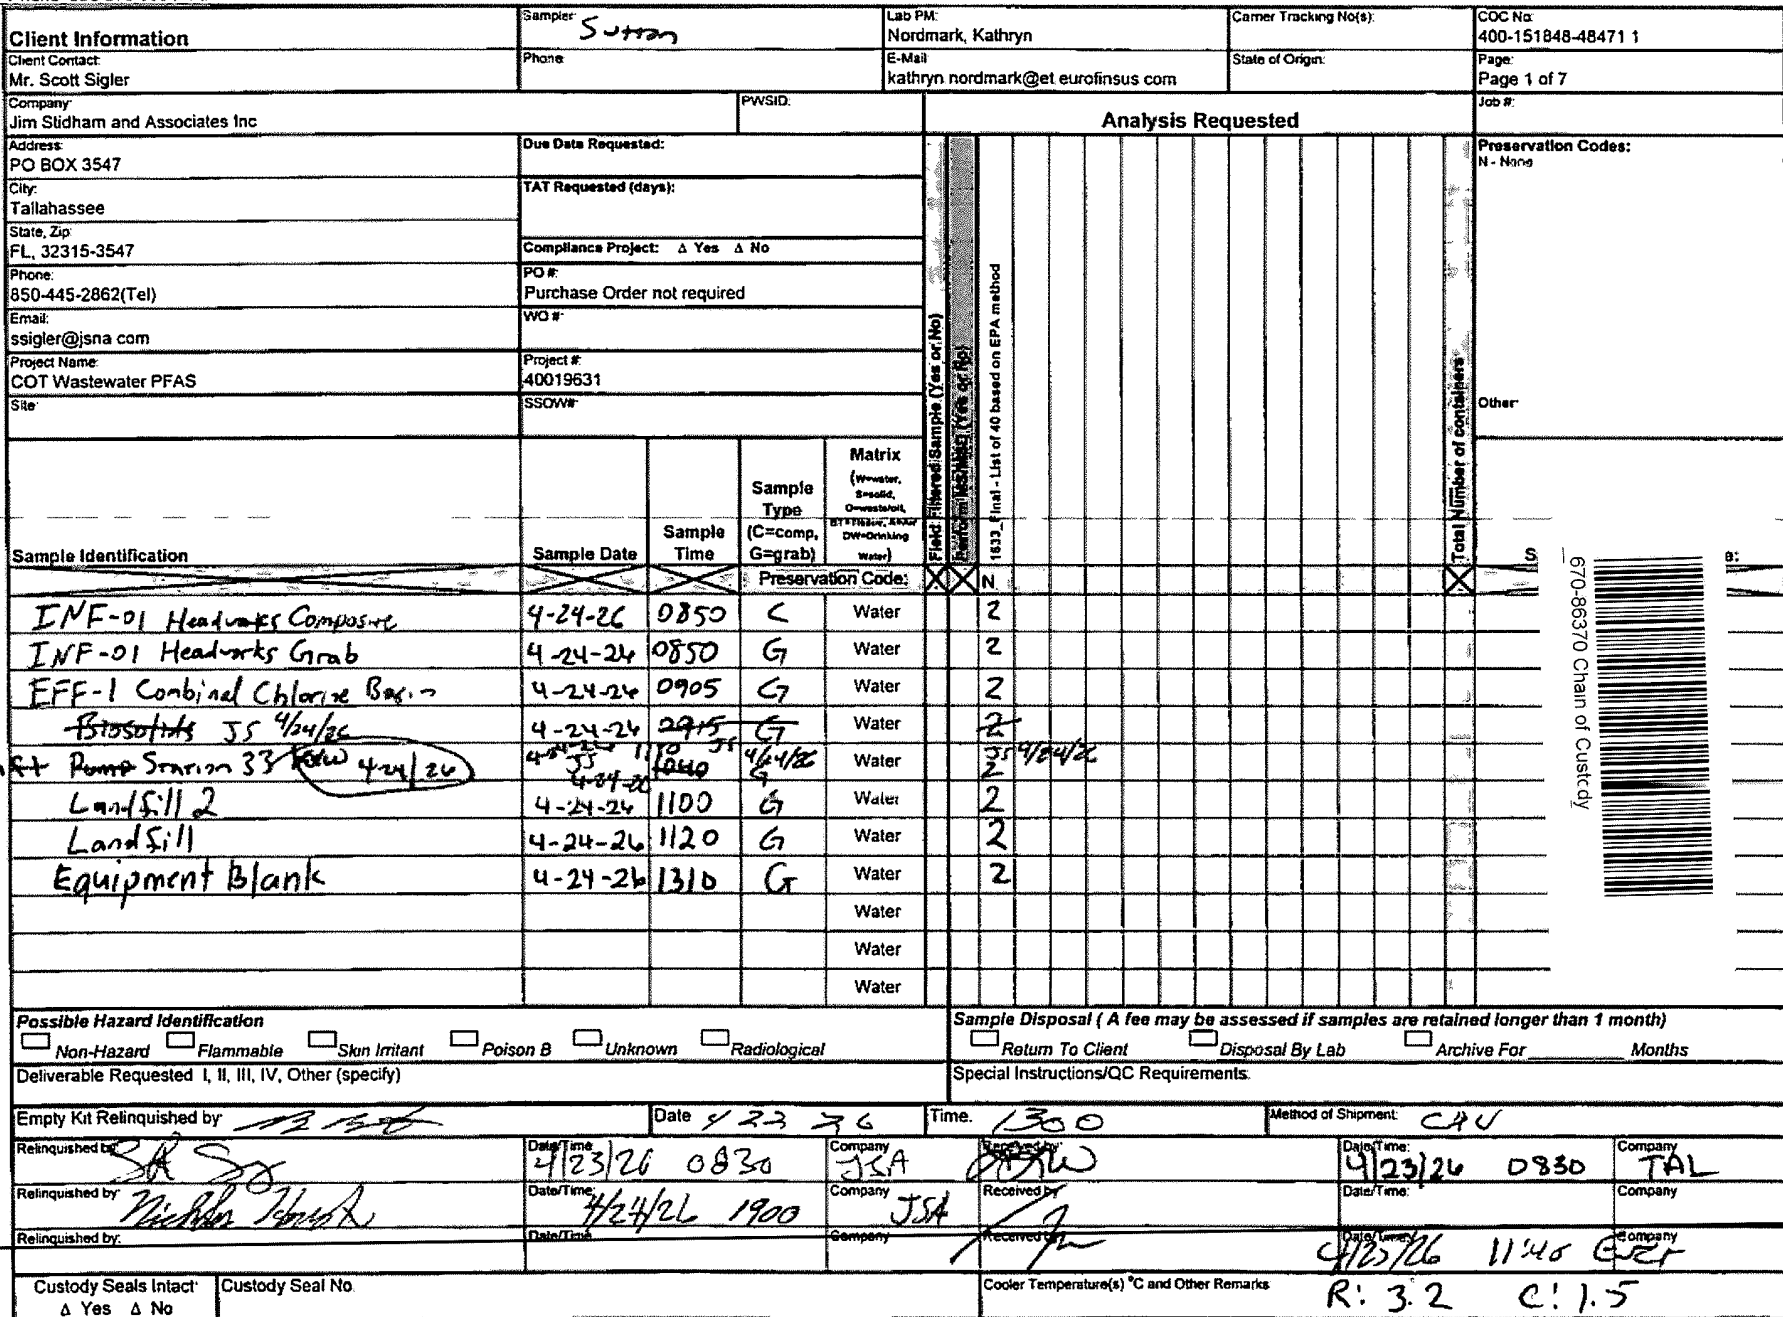 Client Information
Sampler: Sutton
Lab PM: Nordmark, Kathryn
Carrier Tracking No(s):
COC No: 400-151848-48471 1
Client Contact: Mr. Scott Sigler
Phone:
E-Mail: kathryn nordmark@et eurofinsus com
State of Origin:
Page: Page 1 of 7
Company: Jim Stidham and Associates Inc
PWSID:
Analysis Requested
Job #:
Address: PO BOX 3547
Due Date Requested:
Preservation Codes:
N - None
City: Tallahassee
TAT Requested (days):
State, Zip: FL, 32315-3547
Compliance Project: Δ Yes Δ No
Phone: 850-445-2862(Tel)
PO #: Purchase Order not required
Email: ssigler@jsna com
WO #:
Project Name: COT Wastewater PFAS
Project #: 40019631
Site:
SSOW#:
Other:
Field Filtered Sample (Yes or No)
Perform MS/MSD (Yes or No)
1633_Final - List of 40 based on EPA method
Total Number of containers
Sample Identification
Sample Date
Sample Time
Sample Type (C=comp, G=grab)
Matrix (W=water, S=solid, O=waste/oil, BT=Tissue, A=Air DW=Drinking Water)
Preservation Code: N
670-86370 Chain of Custody
INF-01 Headworks Composite 4-24-26 0850 C Water 2
INF-01 Headworks Grab 4-24-26 0850 G Water 2
EFF-1 Combined Chlorine Basin 4-24-26 0905 G Water 2
Biosolids JS 4/24/26 4-24-26 0915 G Water 2
Pump Station 33 4-24/26 1110 JS 4/24/26 Water JS 4/24/26
JS 4-24-26 1040 G 2
Landfill 2 4-24-26 1100 G Water 2
Landfill 4-24-26 1120 G Water 2
Equipment Blank 4-24-26 1310 G Water 2
Water
Water
Water
Possible Hazard Identification
Non-Hazard Flammable Skin Irritant Poison B Unknown Radiological
Sample Disposal ( A fee may be assessed if samples are retained longer than 1 month)
Return To Client Disposal By Lab Archive For Months
Deliverable Requested I, II, III, IV, Other (specify)
Special Instructions/QC Requirements:
Empty Kit Relinquished by: Date 4 22 26 Time: 1300 Method of Shipment:
Relinquished by: Date/Time: 4/23/26 0830 Company JSA Received by: Date/Time: 4/23/26 0830 Company TAL
Relinquished by: Date/Time: 4/24/26 1900 Company JSA Received by: Date/Time: Company
Relinquished by: Date/Time: Company Received by: Date/Time: 4/25/26 11:40 Company
Custody Seals Intact: Δ Yes Δ No
Custody Seal No.
Cooler Temperature(s) °C and Other Remarks R: 3.2 C: 1.5